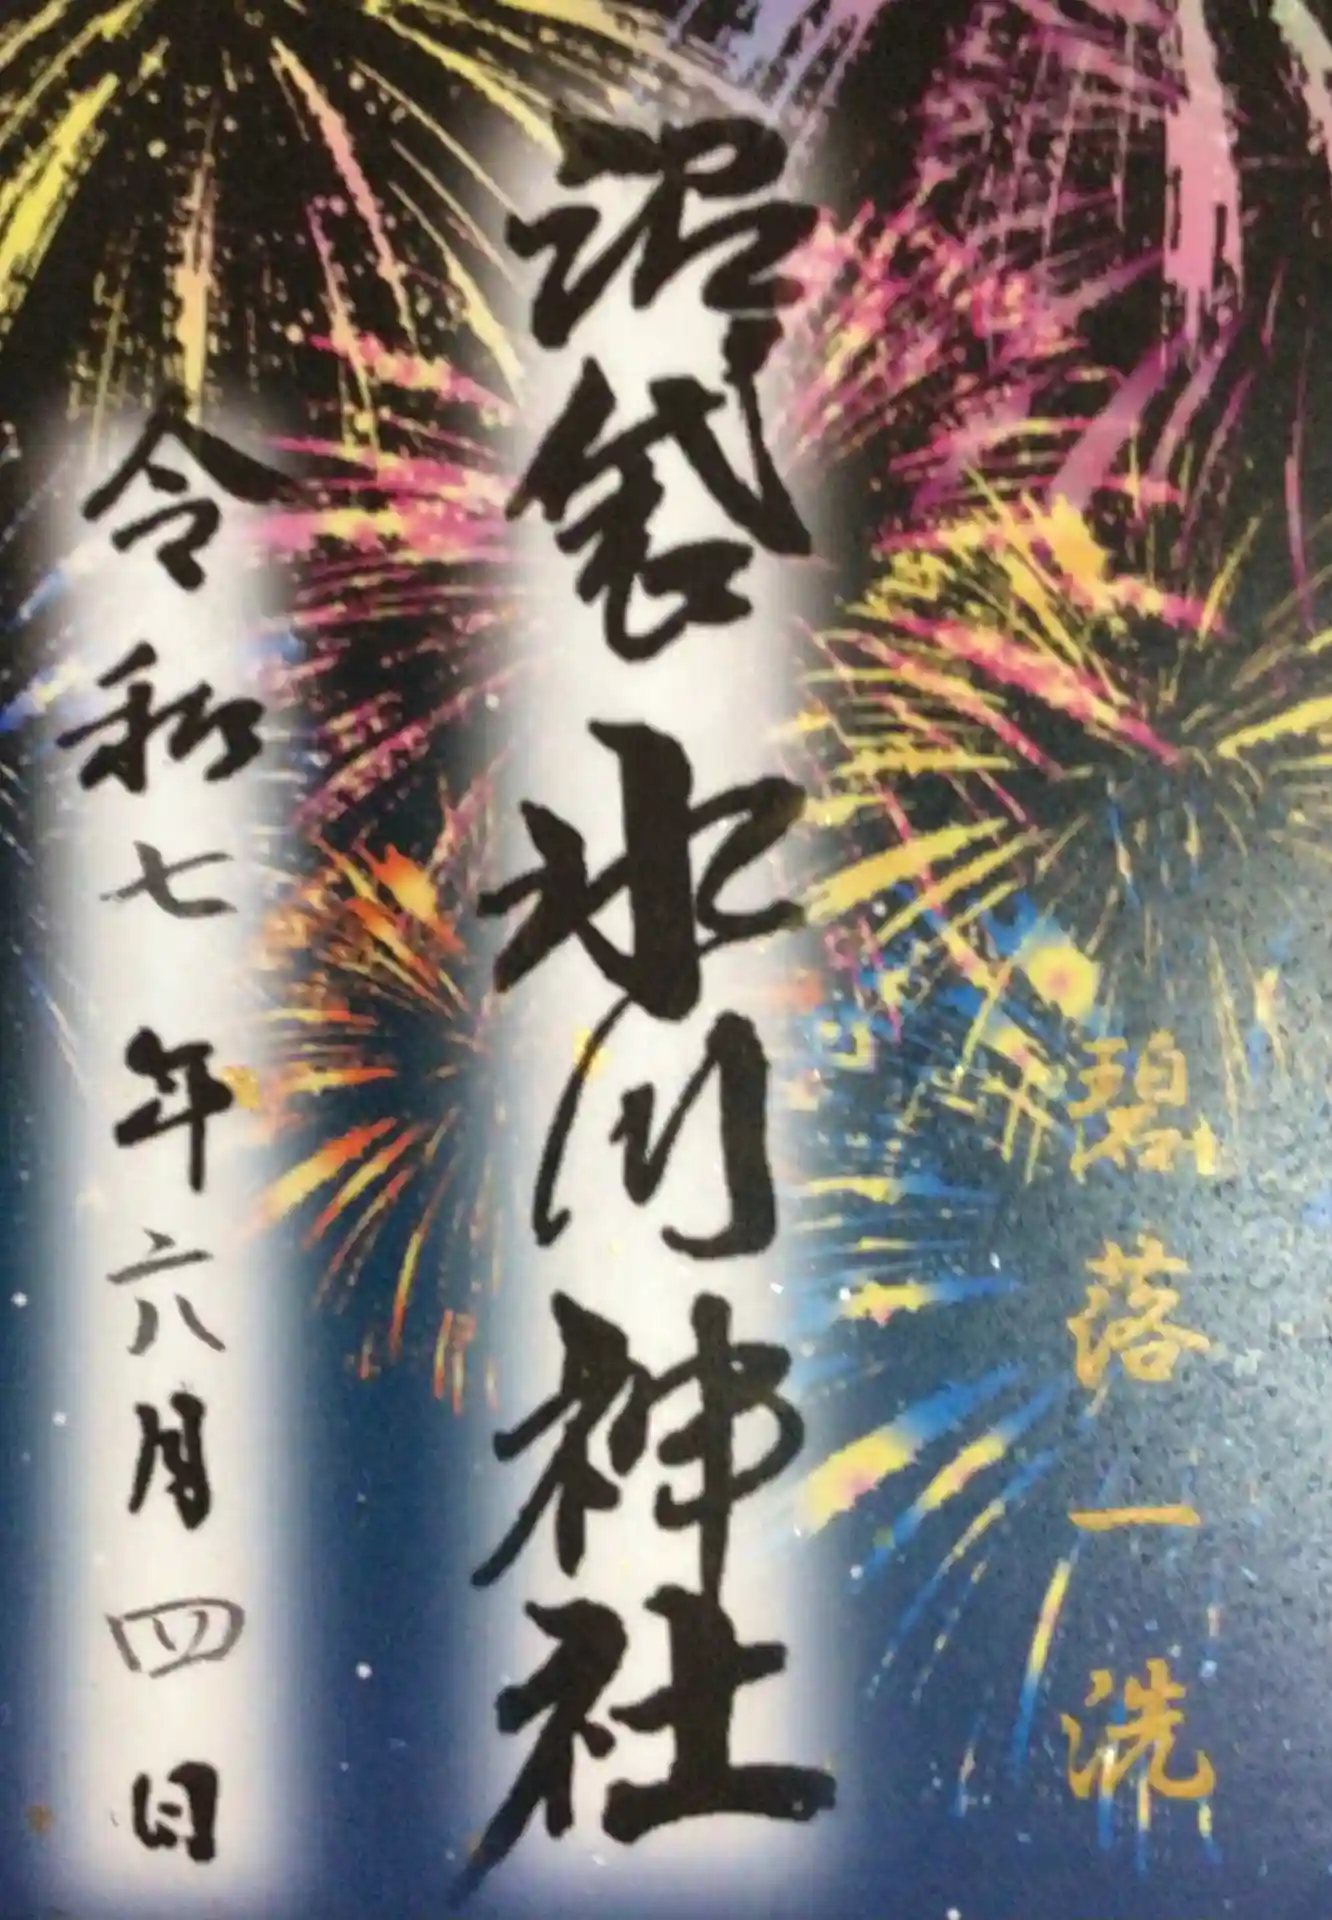 碧落一洗
沼袋氷川神社
令和七年六月四日